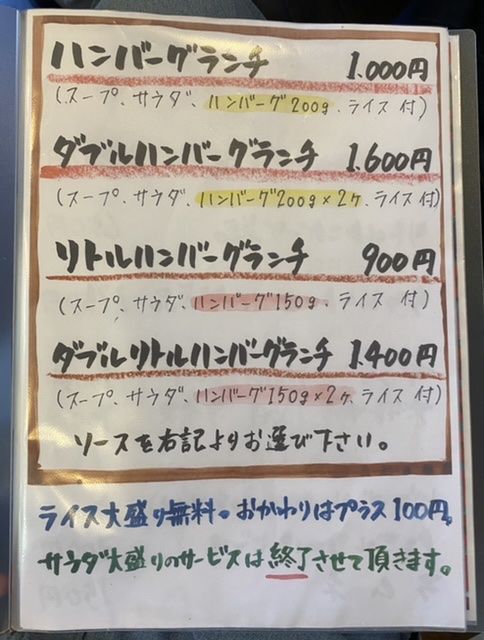 ハンバーグランチ 1.000円
(スープ、サラダ、ハンバーグ200g、ライス付)
ダブルハンバーグランチ 1.600円
(スープ、サラダ、ハンバーグ200g×2ヶ、ライス付)
リトルハンバーグランチ 900円
(スープ、サラダ、ハンバーグ150g、ライス付)
ダブルリトルハンバーグランチ 1.400円
(スープ、サラダ、ハンバーグ150g×2ヶ、ライス付)
ソースを右記よりお選び下さい。
ライス大盛り無料。おかわりはプラス100円。
サラダ大盛りのサービスは終了させて頂きます。